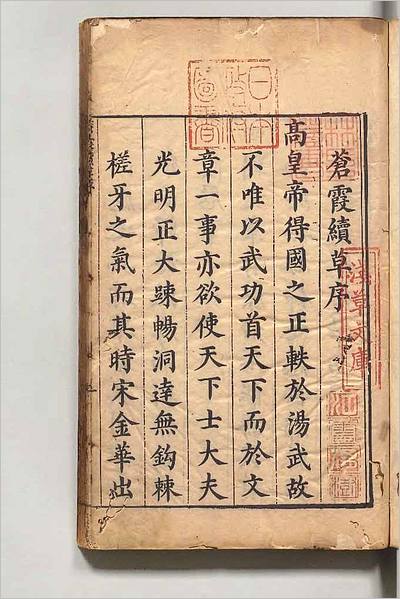 蒼霞續草序
高皇帝得國之正軼於湯武故
不唯以武功首天下而於文
章一事亦欲使天下士大夫
光明正大踈暢洞達無鈎棘
槎牙之氣而其時宋金華出
淺草文庫